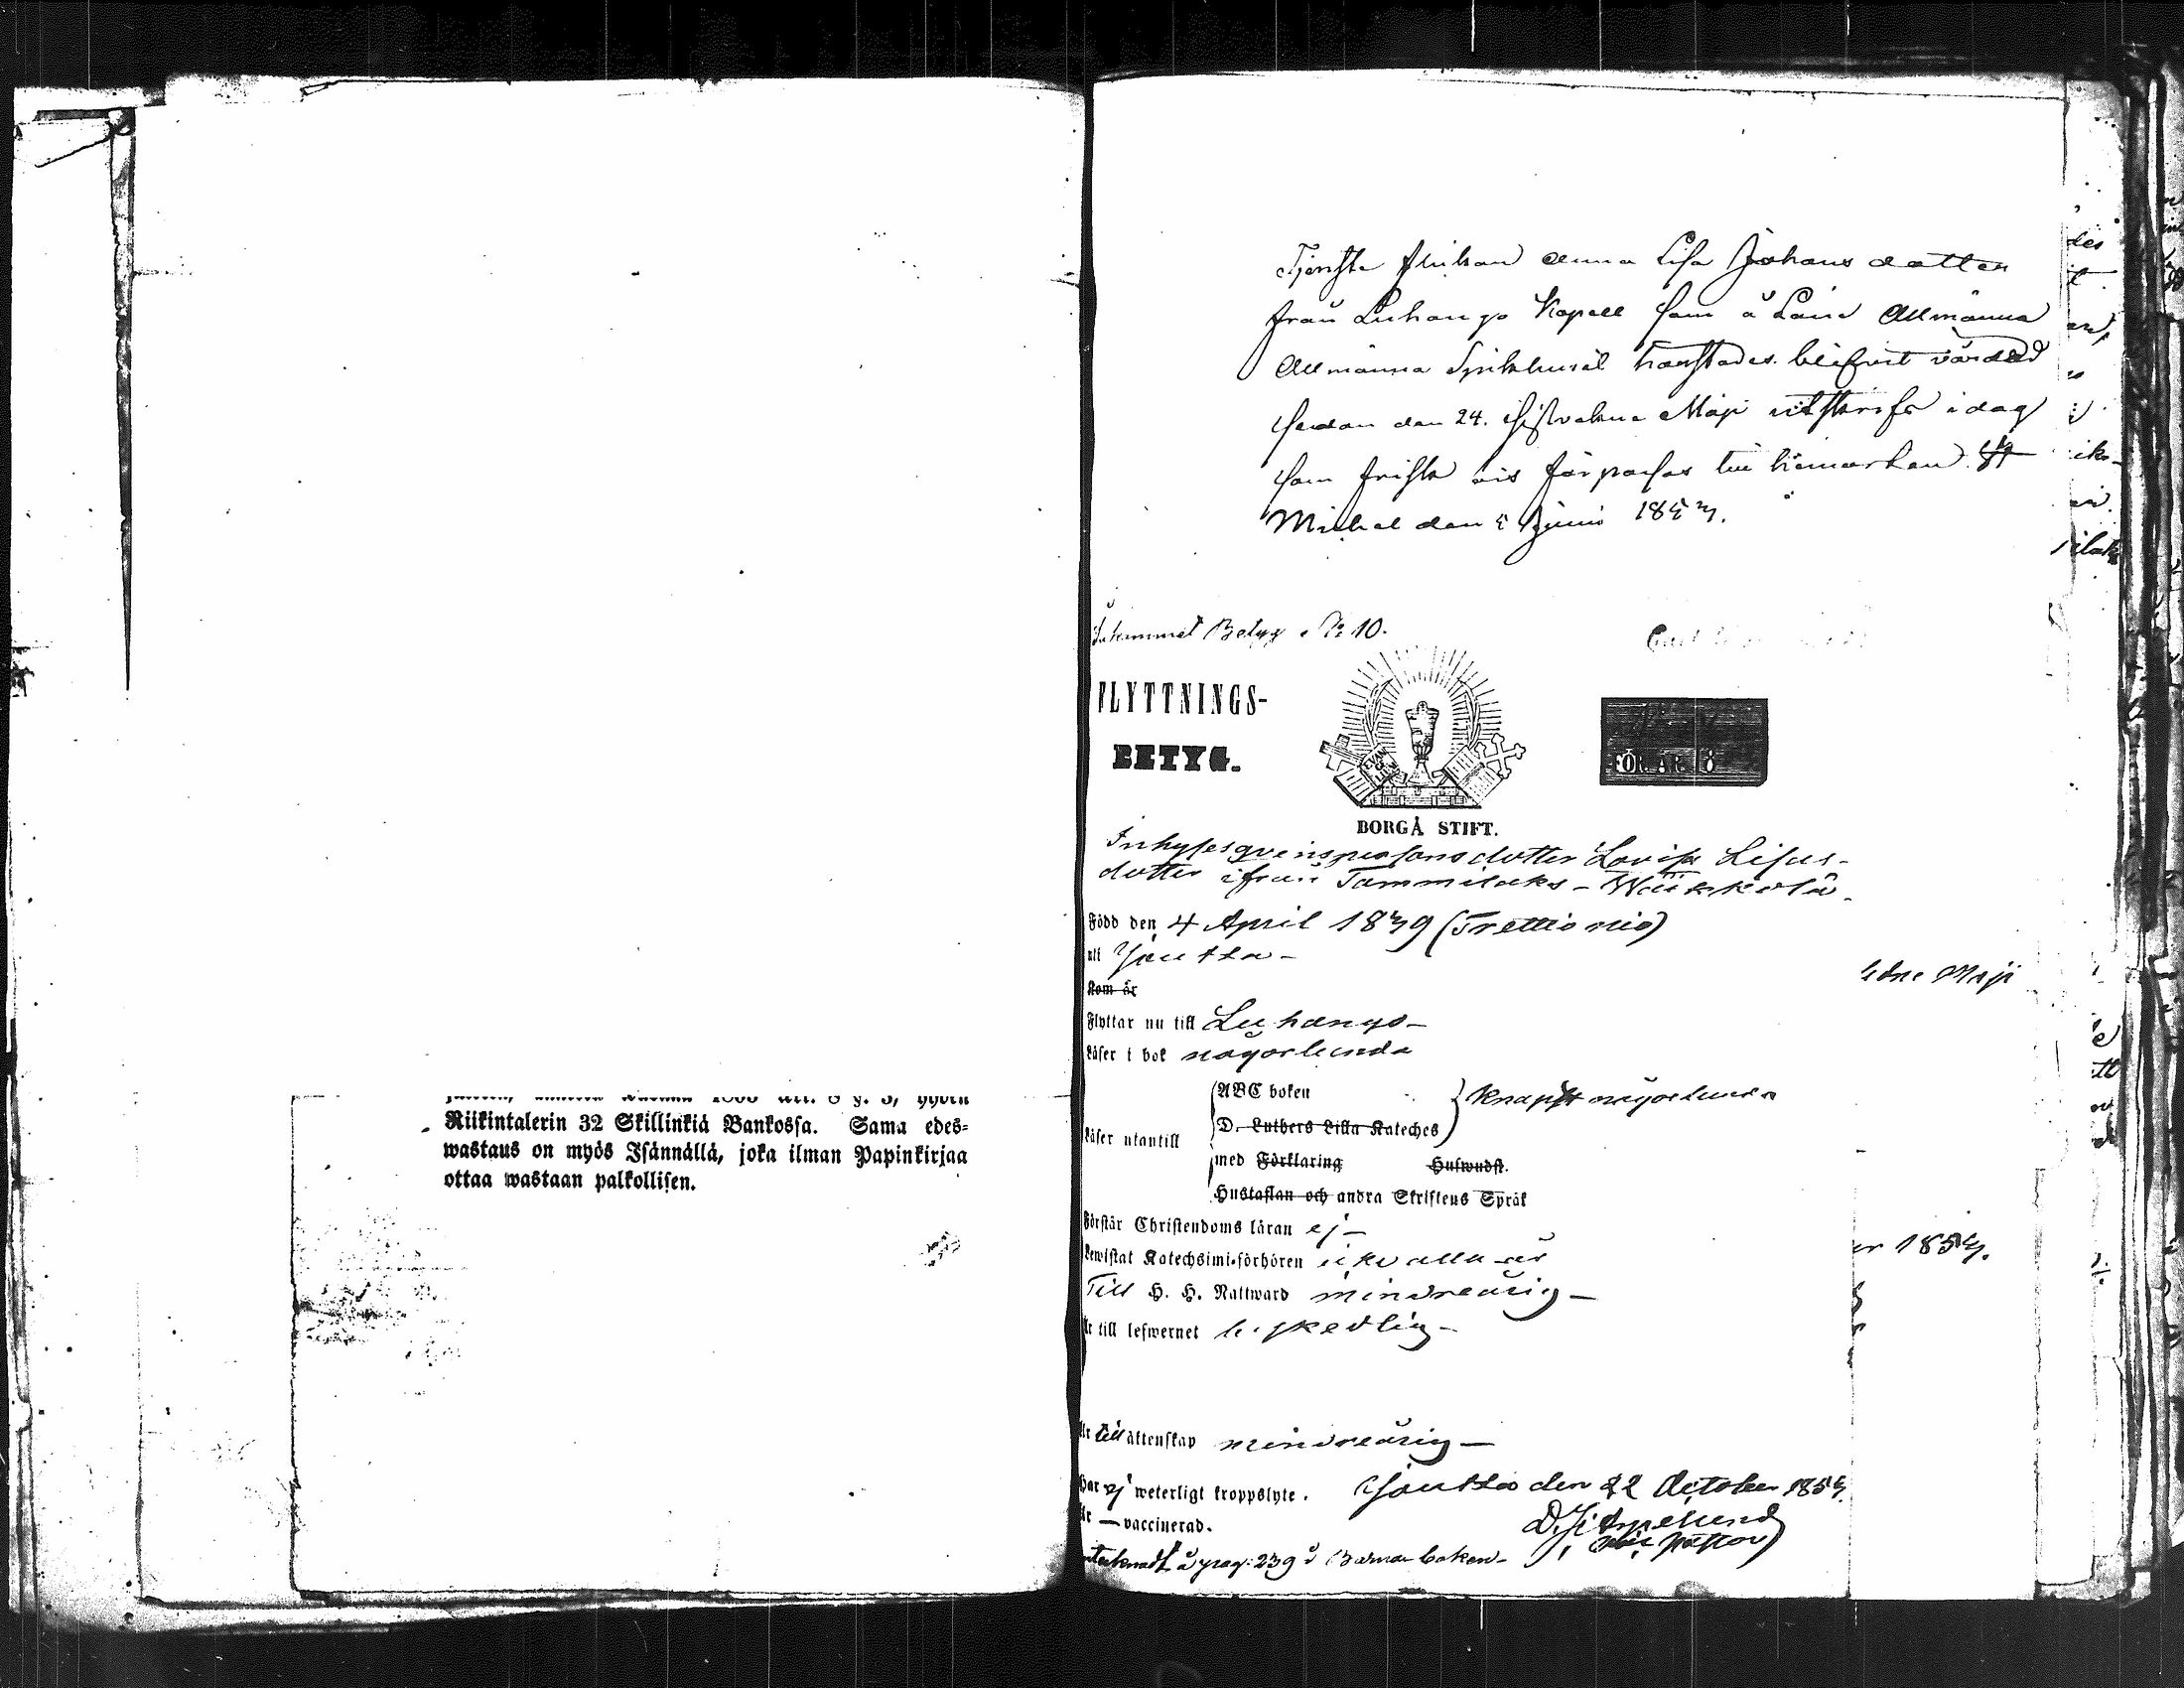 Riikintalerin 32 Skillinkiä Bankossa. Sama edes-
wastaus on myös Isännällä, joka ilman Papinkirjaa
ottaa wastaan palkollisen.
Tjenste flickan Anna Lisa Johans dotter
från Luhango Kapell som å Läns Allmänna
Allmänna Sjukhuset härstädes blifvit vårdad
sedan den 24. sistvekne Maji utskrifves i dag
som frisk och förpassas till hemorten. St
Michel den 5 Junii 1857.
Inkommet Betyg No 10.
FLYTTNINGS-
BETYG.
EVAN
FÖR ÅR 18
BORGÅ STIFT.
Inhyses qvinspersons dotter Lovisa Lisas-
dotter ifrån Tammilaks-
Född den 4 April 1839 (Trettio nio)
uti Joutsa-
Kom år
Flyttar nu till Luhango-
Läser i bok någorlunda
ABC boken
knapt någorlunda
D. Luthers Lilla Kateches
Läser utantill
med Förklaring Huswudst.
Hustaflan och andra Skriftens Språk
Förstår Christendoms läran ej-
Bewistat Katechsimi-förhören icke alla år
Till H. H. Nattward minderårig-
Är till lefwernet beskedlig-
Är till äktenskap minderårig-
Har ej weterligt kroppslyte. Joutsa den 22 October 1857.
Är — vaccinerad.
antecknadt å pag: 239 i Barna boken-
Maji
1857.